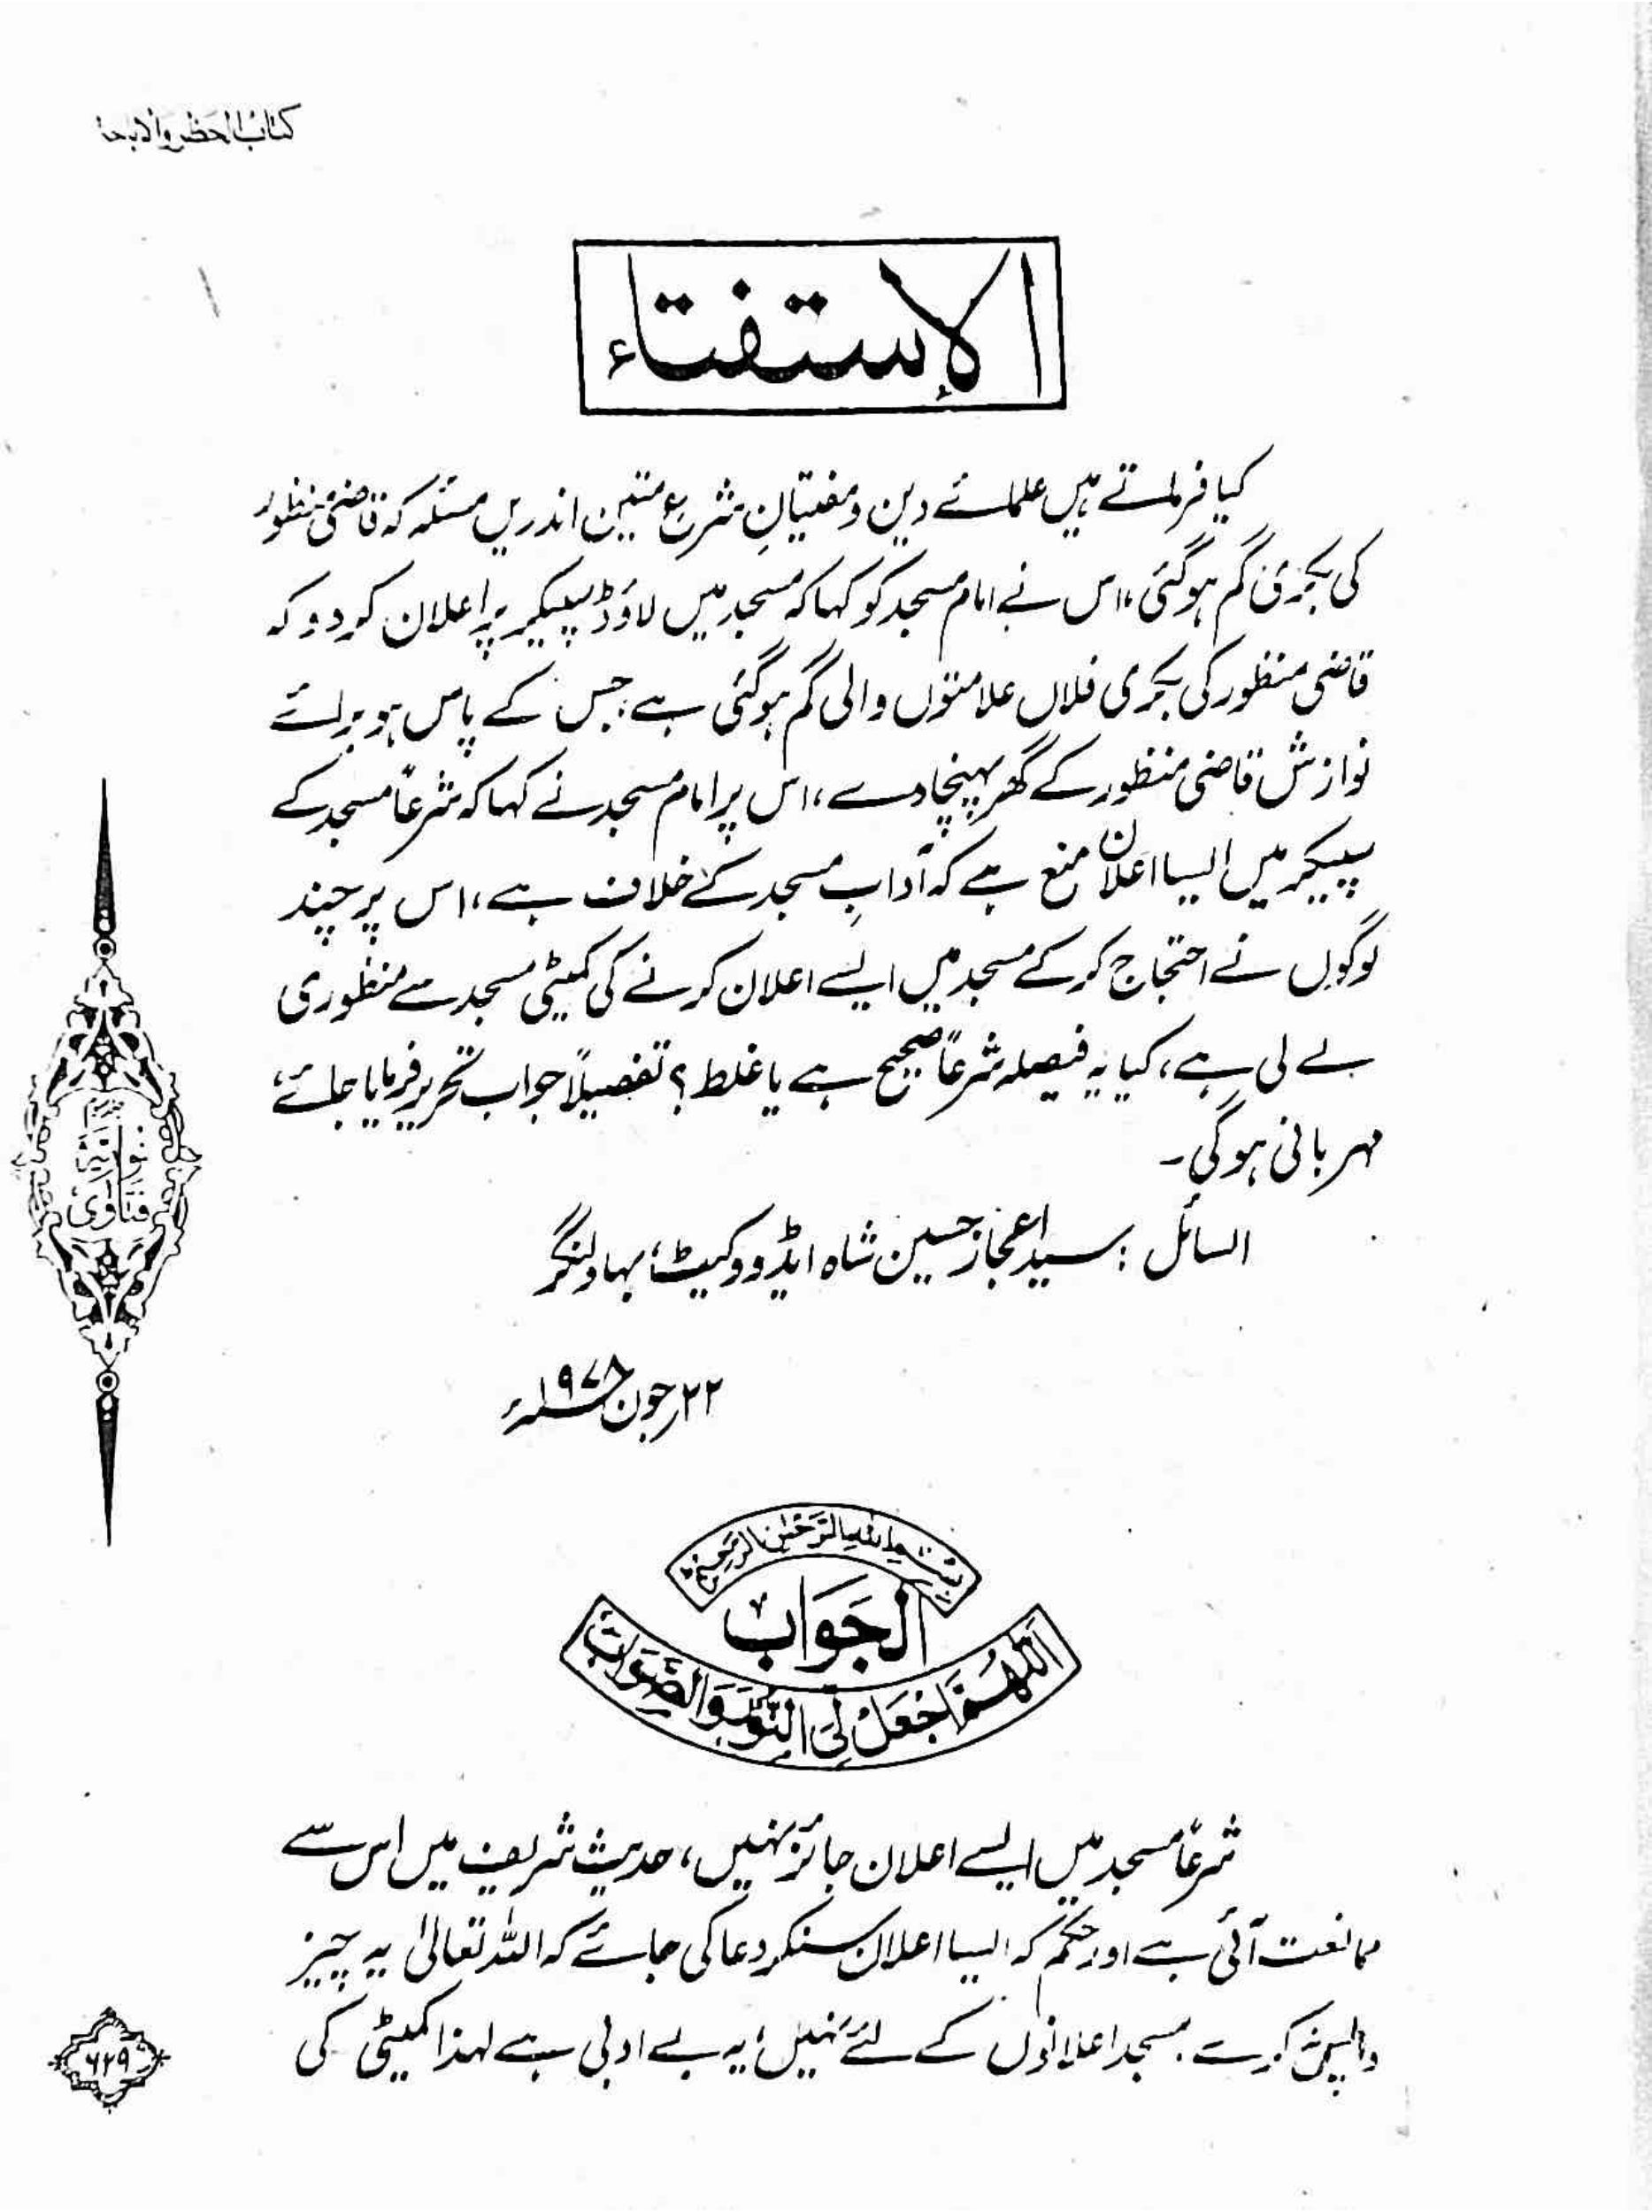 کتاب الحظر والاباحۃ
الاستفتاء
کیا فرماتے ہیں علمائے دین و مفتیانِ شرع متین اندریں مسئلہ کہ قاضی منظور
کی بکری گم ہوگئی، اس نے امام مسجد کو کہا کہ مسجد میں لاؤڈ سپیکر پر اعلان کردو کہ
قاضی منظور کی بکری فلاں علامتوں والی گم ہوگئی ہے، جس کے پاس ہو برائے
نوازش قاضی منظور کے گھر پہنچا دے، اس پر امام مسجد نے کہا کہ شرعاً مسجد کے
سپیکر میں ایسا اعلان منع ہے کہ آدابِ مسجد کے خلاف ہے، اس پر چند
لوگوں نے احتجاج کرکے مسجد میں ایسے اعلان کرنے کی کمیٹی مسجد سے منظوری
لے لی ہے، کیا یہ فیصلہ شرعاً صحیح ہے یا غلط؟ تفصیلاً جواب تحریر فرمایا جائے،
مہربانی ہوگی۔
السائل: سید اعجاز حسین شاہ ایڈووکیٹ، بہاولنگر
۲۲؍جون ۱۹۷۸ء
بِسْمِ اللهِ الرَّحْمٰنِ الرَّحِيْمِ
الجَوَابُ
اَللّٰهُمَّ اجْعَلْ لِيَ النُّوْرَ وَالصَّوَابَ
شرعاً مسجد میں ایسے اعلان جائز نہیں، حدیث شریف میں اس سے
ممانعت آئی ہے اور حکم کہ ایسا اعلان سنکر دعا کی جائے کہ اللہ تعالیٰ یہ چیز
واپس نہ کرے۔ مسجد اعلانوں کے لئے نہیں، یہ بے ادبی ہے لہذا کمیٹی کی
فتاویٰ نوریہ
۶۲۹